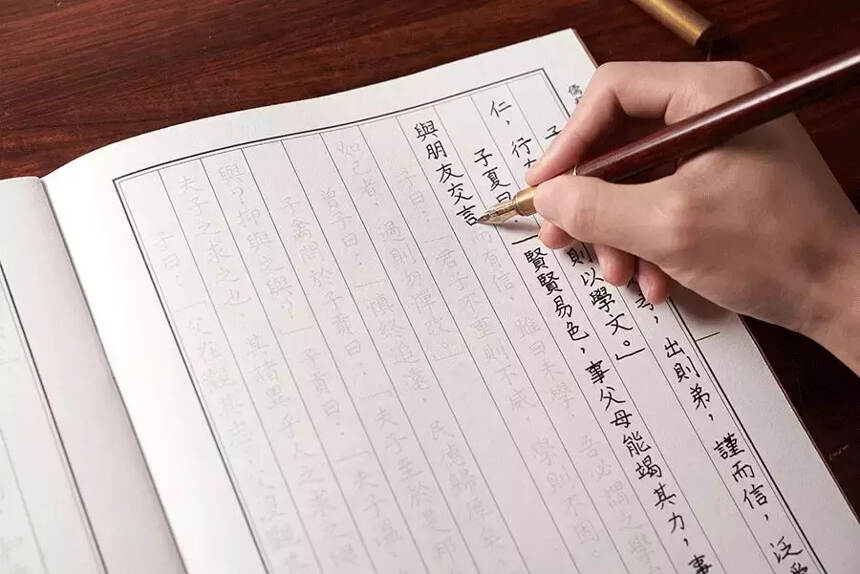 子 孝，出則弟，謹而信，泛
仁，行 則以學文。」
子夏曰：「賢賢易色，事父母能竭其力，事
與朋友交言而有信，雖曰未學，吾必謂之學
子曰：「君子不重則不威，學則不固。
如己者，過則勿憚改。」
曾子曰：「慎終追遠，民德歸厚矣
子禽問於子貢曰：「夫子至於是邦
與？抑與與？」子貢曰：「夫子溫、
夫子之求之也，其諸異乎人之求之與
子曰：「父在觀其志，父沒觀其